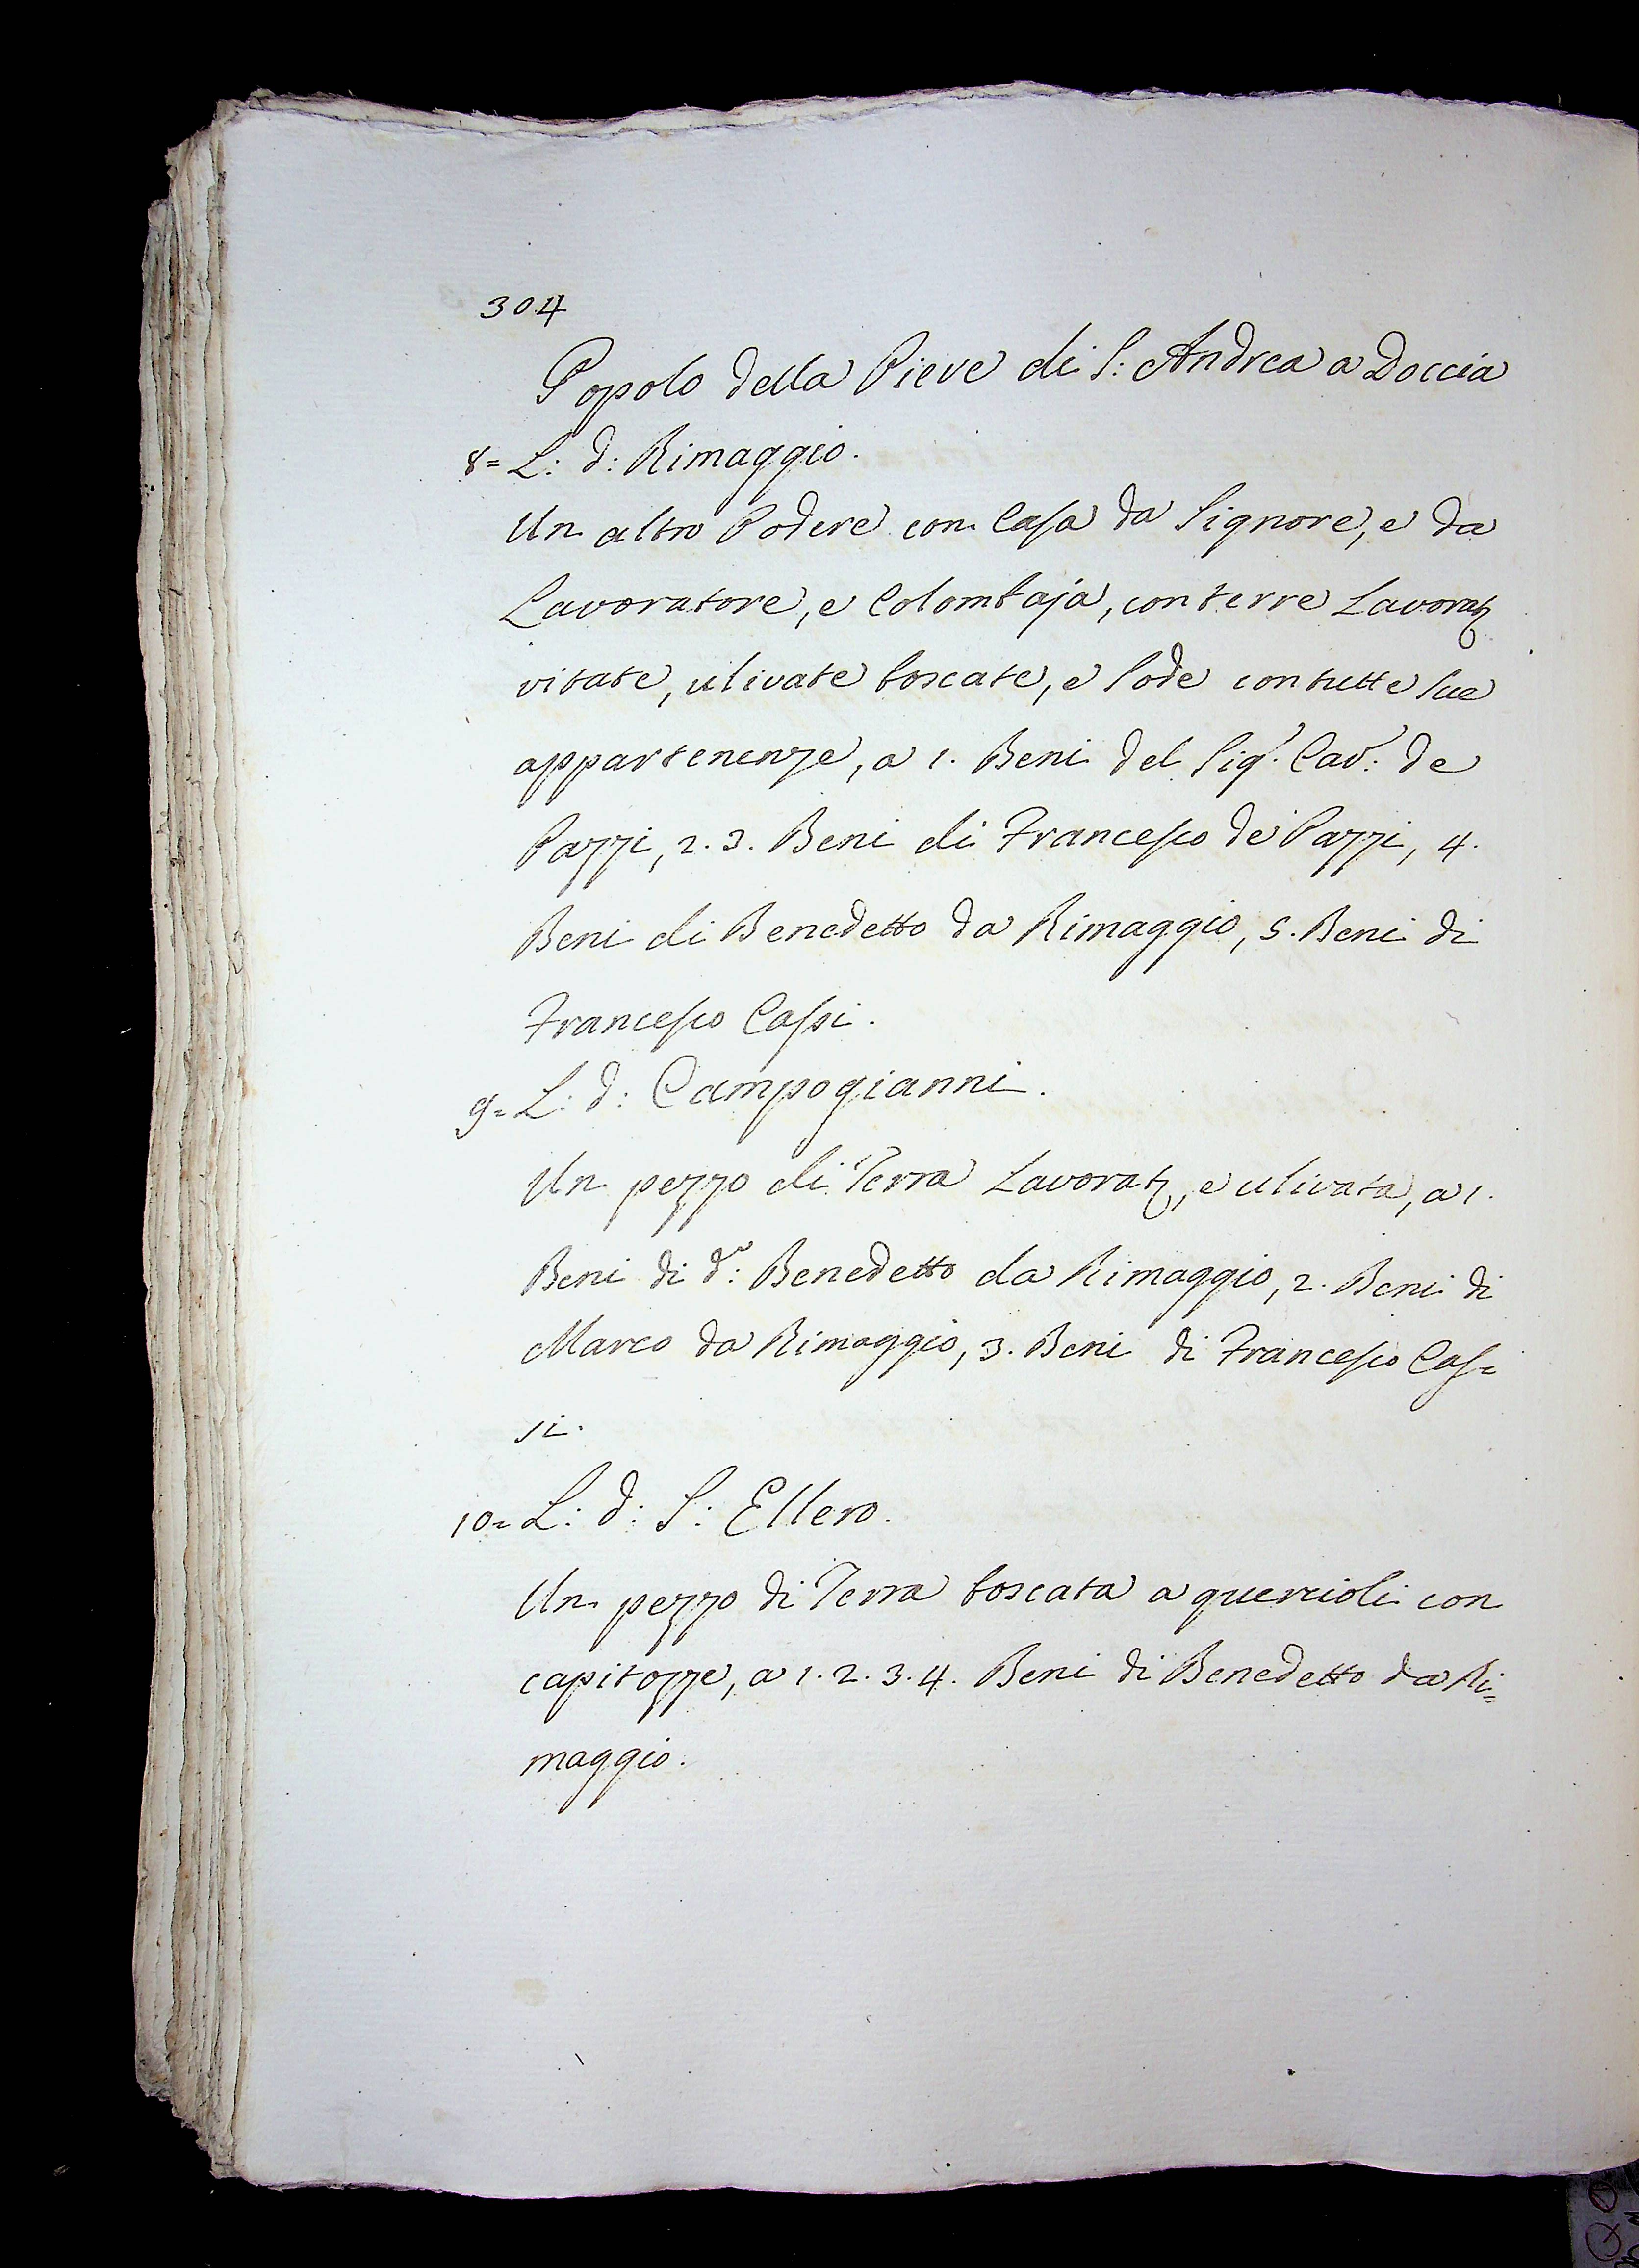 304
Popolo della Pieve di S: Andrea a Doccia
8= L: d: Rimaggio.
Un altro Podere con Casa da Signore, e da
Lavoratore, e Colombaja, con terre Lavorat:
vitate, ulivate boscate, e sode con tutte sue
appartenenze, a 1. Beni del Sig.r Cav:r de
Pazzi, 2. 3. Beni di Francesco de' Pazzi, 4.
Beni di Benedetto da Rimaggio, 5. Beni di
Francesco Cassi.
9= L: d: Campogianni.
Un pezzo di Terra Lavorat:, e ulivata, a 1.
Beni di d:o Benedetto da Rimaggio, 2. Beni di
Marco da Rimaggio, 3. Beni di Francesco Cas=
si.
10= L: d: S: Ellero.
Un pezzo di Terra boscata a quercioli con
capitozze, a 1. 2. 3. 4. Beni di Benedetto da Ri=
maggio.